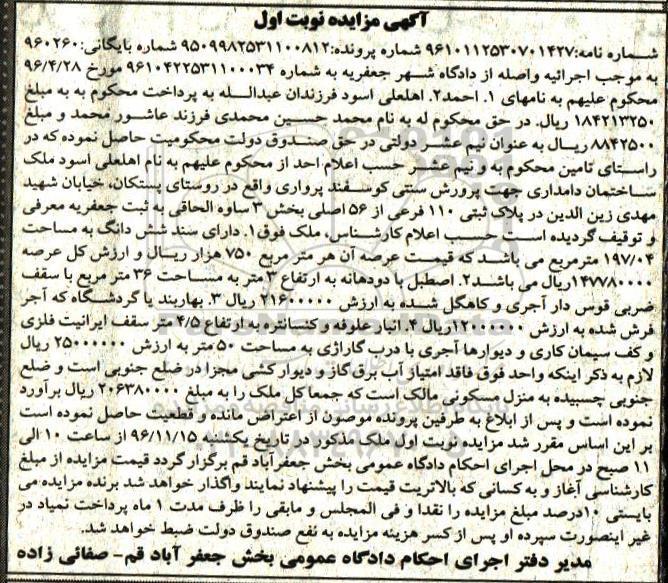 آگهی مزایده نوبت اول
شماره نامه:۹۶۱۰۱۱۲۵۳۰۷۰۱۴۲۷ شماره پرونده:۹۵۰۹۹۸۲۵۳۱۱۰۰۸۱۲ شماره بایگانی:۹۶۰۲۶۰
به موجب اجرائیه واصله از دادگاه شهر جعفریه به شماره ۹۶۱۰۴۲۲۵۳۱۱۰۰۰۳۴ مورخ ۹۶/۴/۲۸
محکوم علیهم به نامهای ۱. احمد۲. اهلعلی اسود فرزندان عبدالله به پرداخت محکوم به به مبلغ
۱۸۴۲۱۳۲۵۰ ریال. در حق محکوم له به نام محمد حسین محمدی فرزند عاشور محمد و مبلغ
۸۸۴۲۵۰۰ ریال به عنوان نیم عشر دولتی در حق صندوق دولت محکومیت حاصل نموده که در
راستای تامین محکوم به و نیم عشر حسب اعلام احد از محکوم علیهم به نام اهلعلی اسود ملک
ساختمان دامداری جهت پرورش سنتی گوسفند پرواری واقع در روستای پستکان، خیابان شهید
مهدی زین الدین در پلاک ثبتی ۱۱۰ فرعی از ۵۶ اصلی بخش ۳ ساوه الحاقی به ثبت جعفریه معرفی
و توقیف گردیده است. حسب اعلام کارشناس، ملک فوق۱. دارای سند شش دانگ به مساحت
۱۹۷/۰۴ مترمربع می باشد که قیمت عرصه آن هر متر مربع ۷۵۰ هزار ریال و ارزش کل عرصه
۱۴۷۷۸۰۰۰۰ریال می باشد.۲. اصطبل با دودهانه به ارتفاع ۳ متر به مساحت ۳۶ متر مربع با سقف
ضربی قوس دار آجری و کاهگل شده به ارزش ۲۱۶۰۰۰۰۰ ریال ۳. بهاربند یا گردشگاه که آجر
فرش شده به ارزش ۱۲۰۰۰۰۰۰ریال ۴. انبار علوفه و کنسانتره به ارتفاع ۴/۵ متر سقف ایرانیت فلزی
و کف سیمان کاری و دیوارها آجری با درب گاراژی به مساحت ۵۰ متر به ارزش ۲۵۰۰۰۰۰۰ ریال
لازم به ذکر اینکه واحد فوق فاقد امتیاز آب برق گاز و دیوار کشی مجزا در ضلع جنوبی است و ضلع
جنوبی چسبیده به منزل مسکونی مالک است که جمعا کل ملک را به مبلغ ۲۰۶۳۸۰۰۰۰ ریال برآورد
نموده است و پس از ابلاغ به طرفین پرونده موصون از اعتراض مانده و قطعیت حاصل نموده است
بر این اساس مقرر شد مزایده نوبت اول ملک مذکور در تاریخ یکشنبه ۹۶/۱۱/۱۵ از ساعت ۱۰ الی
۱۱ صبح در محل اجرای احکام دادگاه عمومی بخش جعفرآباد قم برگزار گردد قیمت مزایده از مبلغ
کارشناسی آغاز و به کسانی که بالاتریت قیمت را پیشنهاد نمایند واگذار خواهد شد برنده مزایده می
بایستی ۱۰درصد مبلغ مزایده را نقدا و فی المجلس و مابقی را ظرف مدت ۱ ماه پرداخت نمیاد در
غیر اینصورت سپرده او پس از کسر هزینه مزایده به نفع صندوق دولت ضبط خواهد شد.
مدیر دفتر اجرای احکام دادگاه عمومی بخش جعفر آباد قم- صفائی زاده